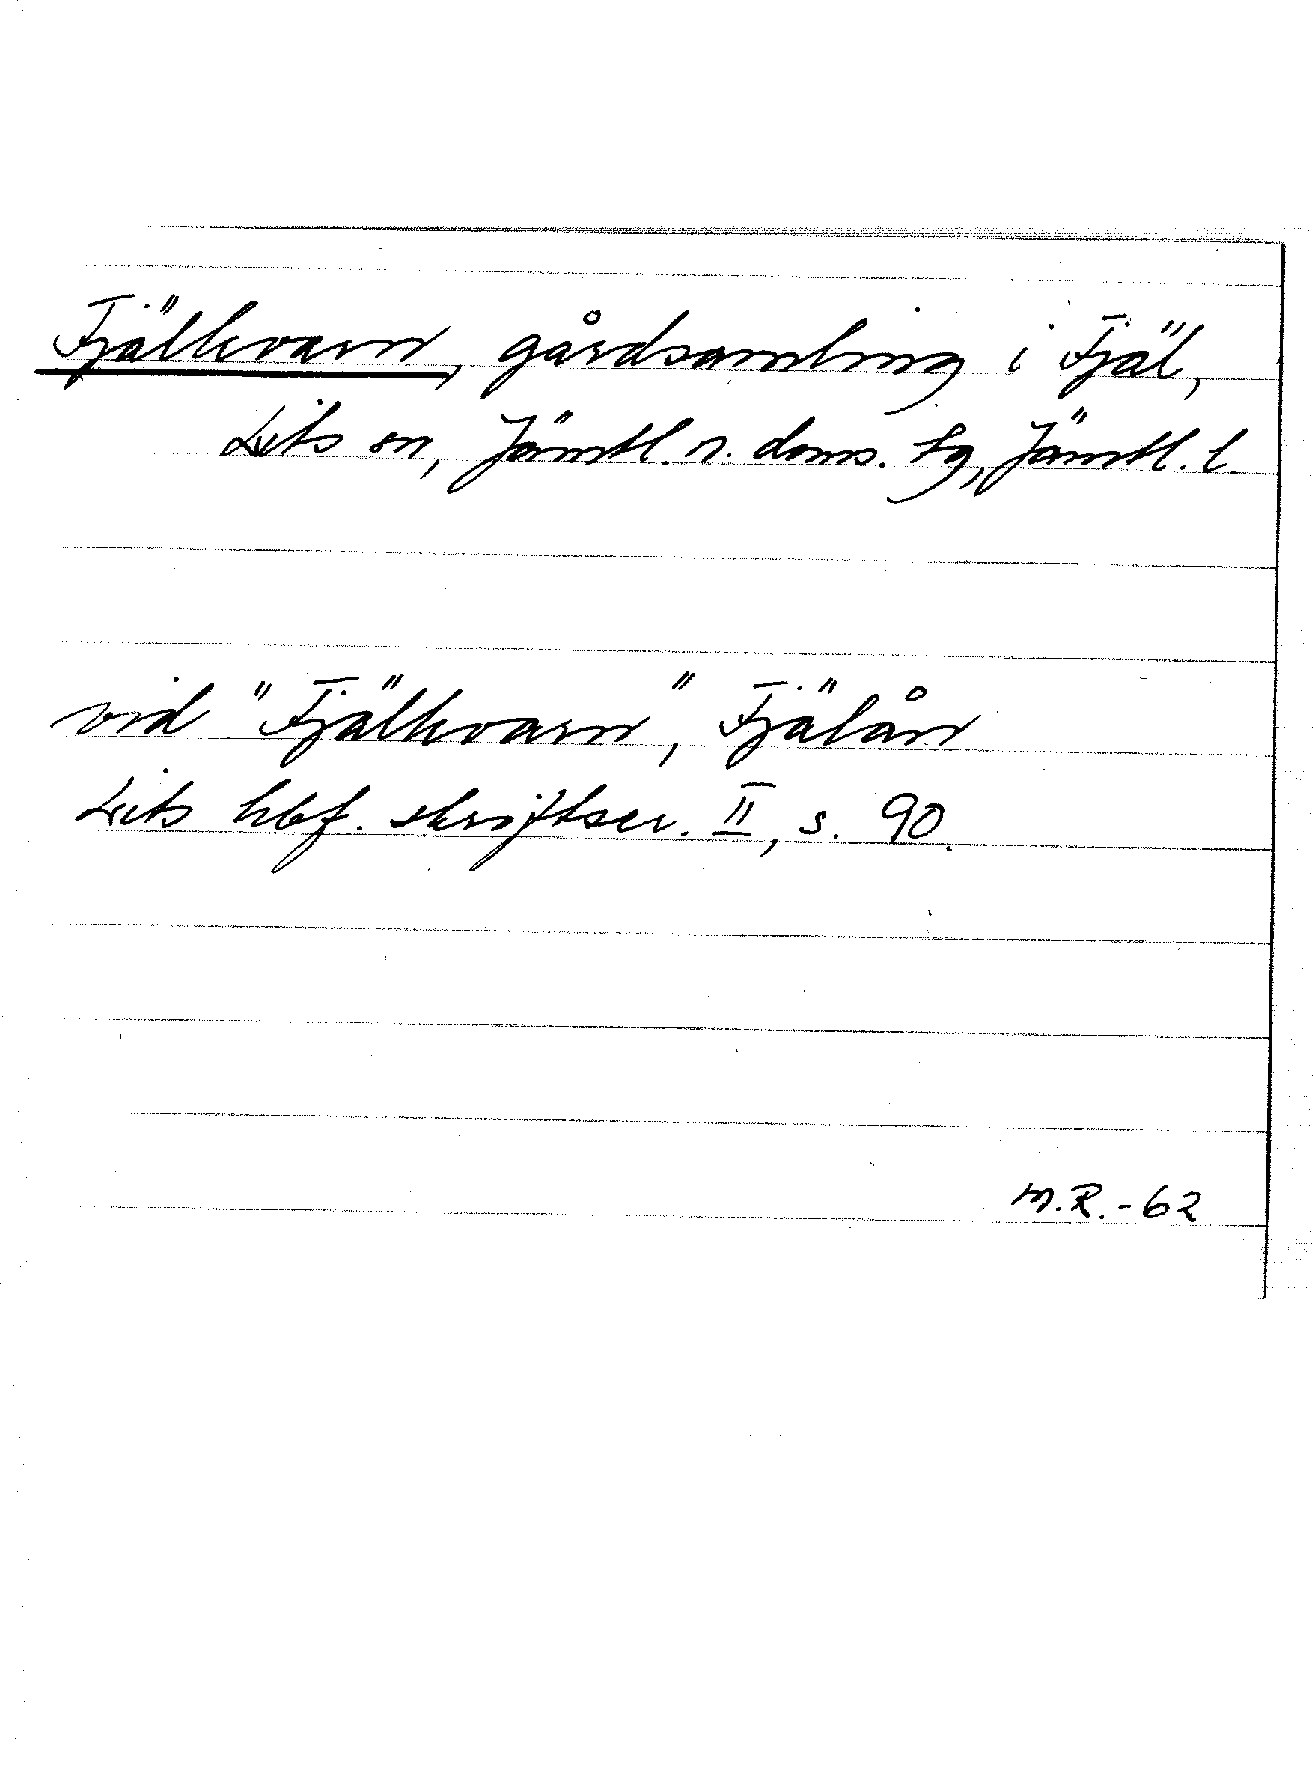 Fjälkvarn, gårdsamling i Fjäl,
Lits sn, Jämtl. n. doms. tg, Jämtl. l.
vid "Fjälkvarn", Fjälån
Lits hbf. skriftser. II, s. 90.
M.R.-62